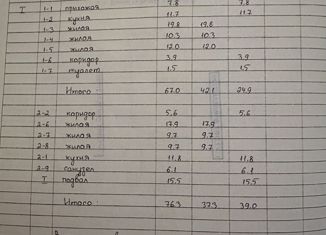 I 1-1 прихожая 7.8 7.8
1-2 кухня 11.7 11.7
1-3 жилая 19.8 19.8
1-4 жилая 10.3 10.3
1-5 жилая 12.0 12.0
1-6 коридор 3.9 3.9
1-7 туалет 1.5 1.5
Итого 67.0 42.1 24.9
2-2 коридор 5.6 5.6
2-6 жилая 17.9 17.9
2-7 жилая 9.7 9.7
2-8 жилая 9.7 9.7
2-1 кухня 11.8 11.8
2-9 санузел 6.1 6.1
I подвал 15.5 15.5
Итого: 76.3 37.3 39.0